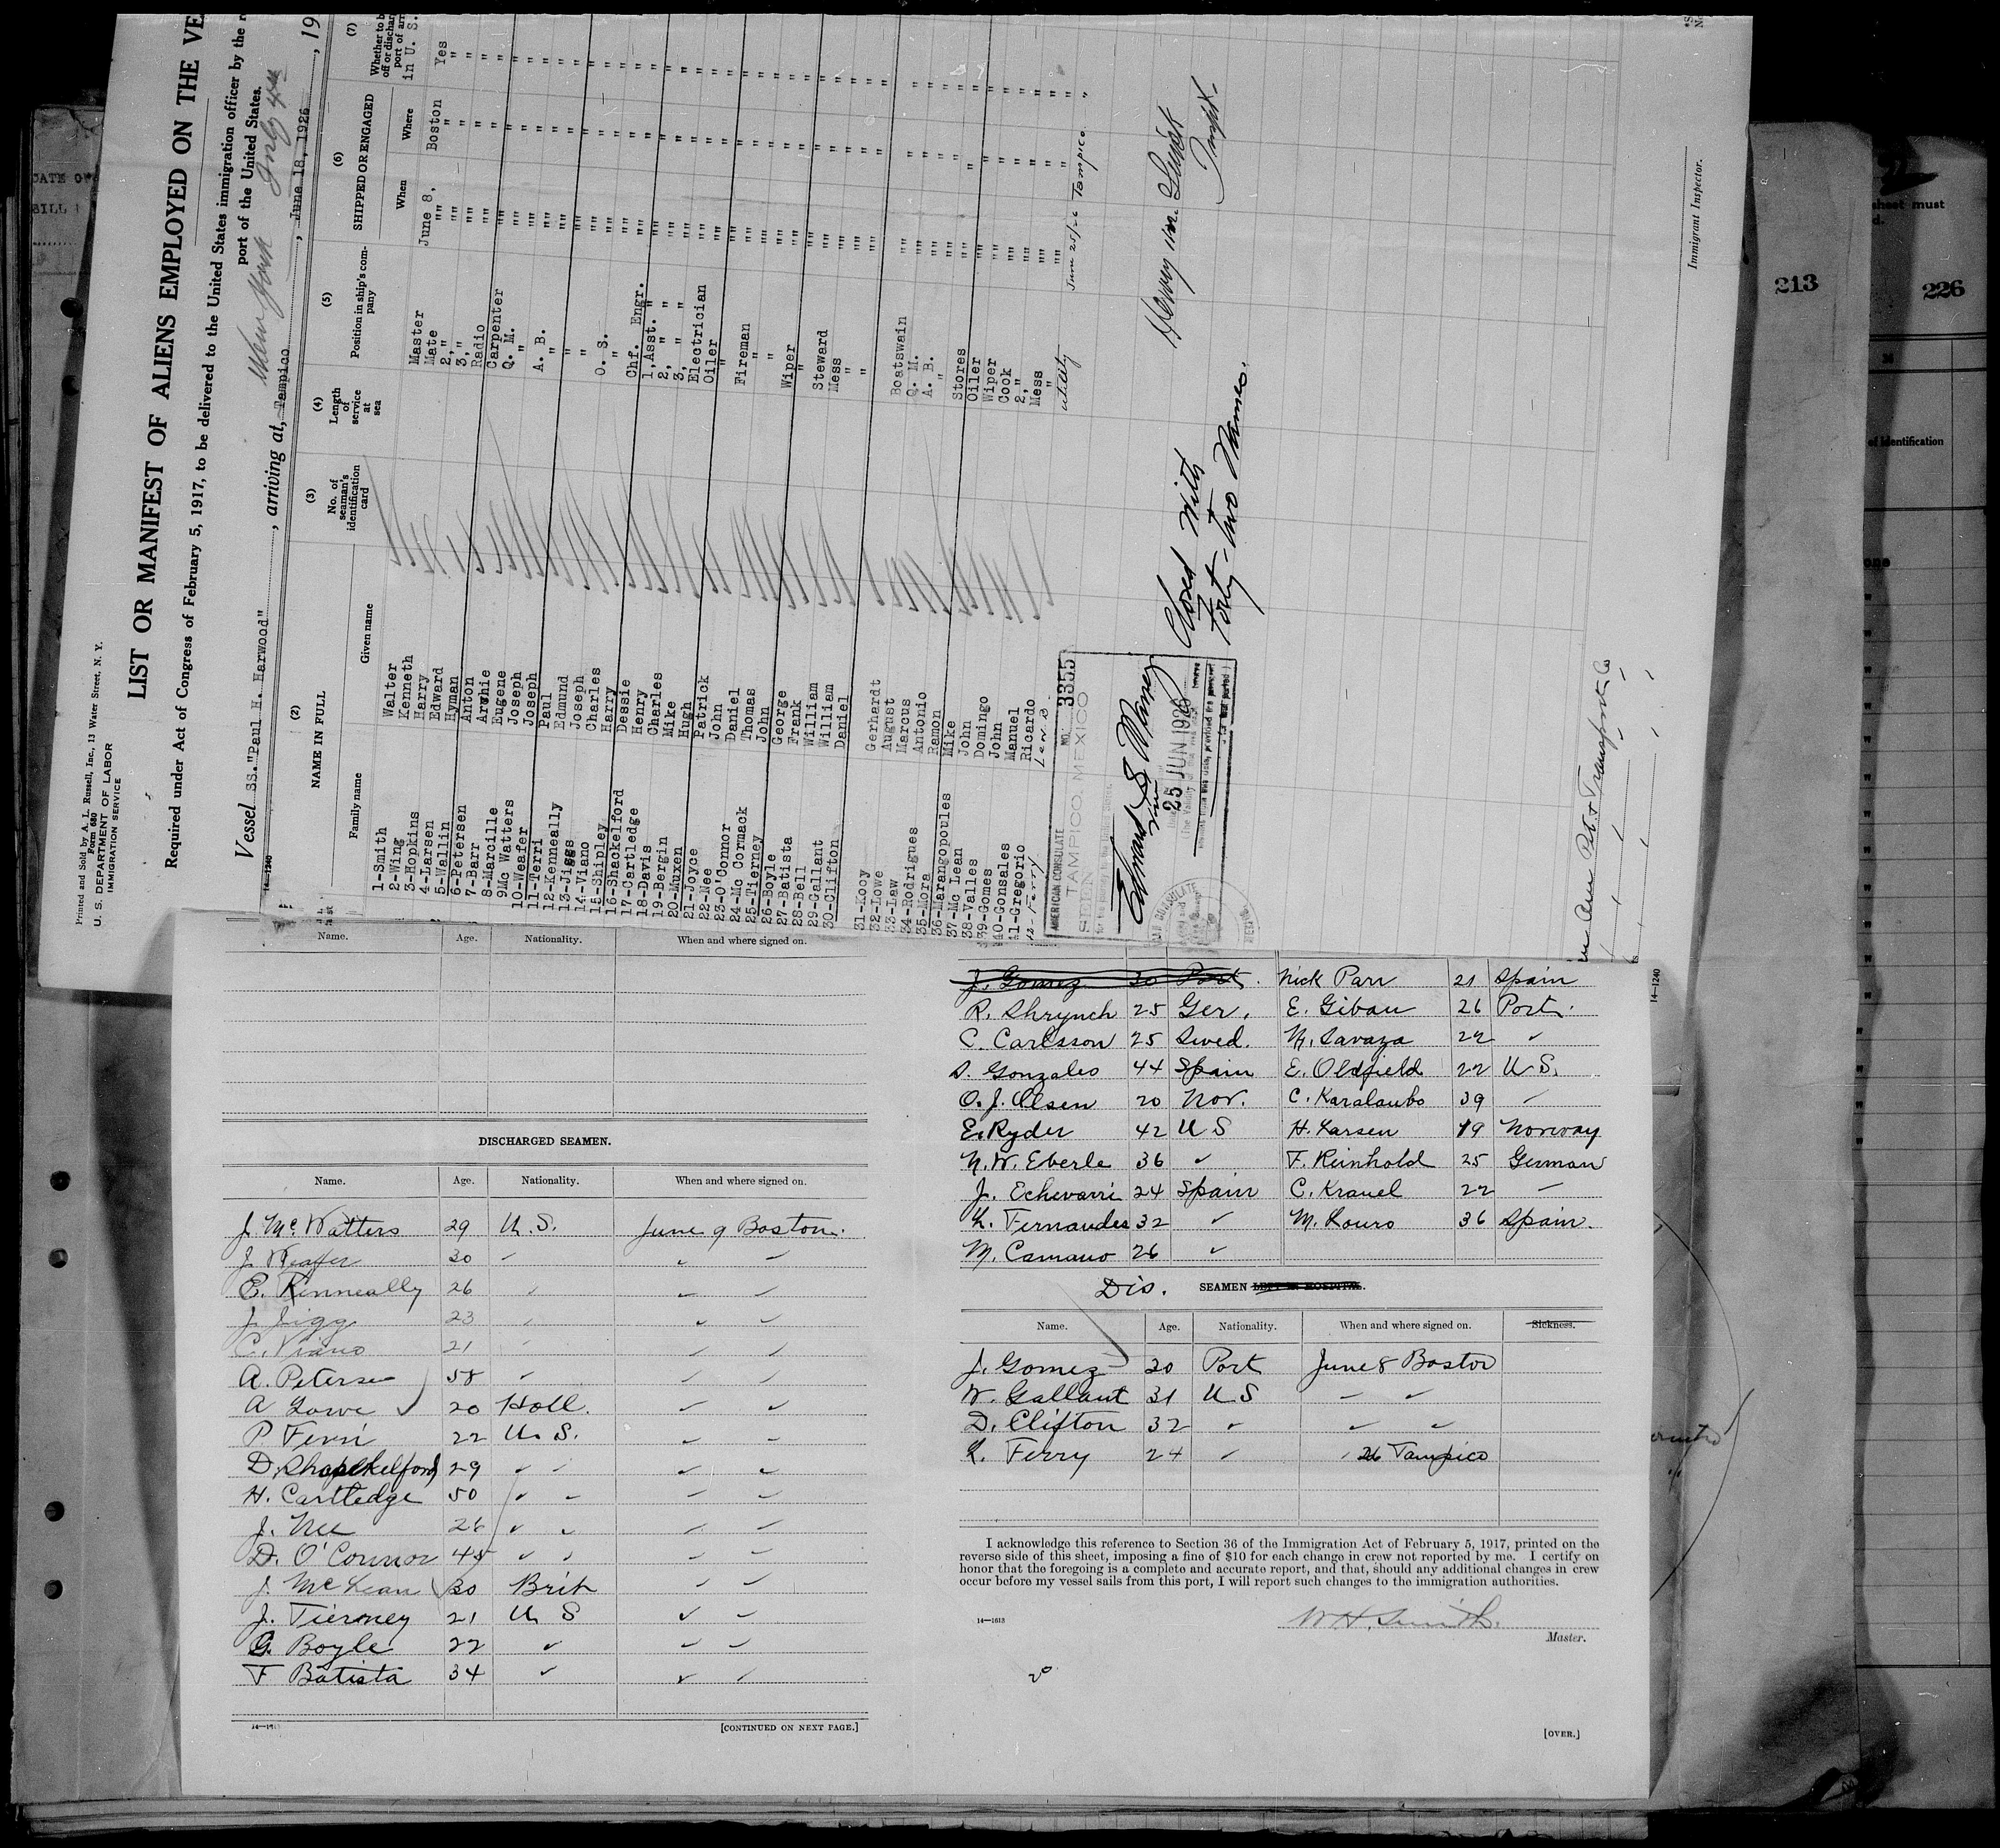 Printed and Sold by A. L. Russell, Inc., 13 Water Street, N. Y.
Form 680
U. S. DEPARTMENT OF LABOR
IMMIGRATION SERVICE
LIST OR MANIFEST OF ALIENS EMPLOYED ON THE VE
Required under Act of Congress of February 5, 1917, to be delivered to the United States immigration officer by the r
port of the United States.
New York July 4th
Vessel SS. "Paul H. Harwood", arriving at, Tampico, June 18, 1926, 19
14-1240
(2) (3) (4) (5) (6) (7)
NAME IN FULL
Family name Given name
No. of seaman's identification card
Length of service at sea
Position in ship's company
SHIPPED OR ENGAGED
When Where
Whether to b
off or dischar
port of arr
in U. S.
1-Smith Walter Master June 8, Boston Yes
2-Wing Kenneth Mate "" " "
3-Hopkins Harry 2, " "" " "
4-Larsen Edward 3, " "" " "
5-Wallin Hyman Radio "" " "
6-Petersen Anton Carpenter "" " "
7-Barr Archie Q. M. "" " "
8-Marcille Eugene " "" " "
9Mc Watters Joseph A. B. "" " "
10-Weafer Joseph " "" " "
11-Terri Paul " "" " "
12-Kenneally Edmund " "" " "
13-Jiggs Joseph O. S. "" " "
14-Viano Charles " "" " "
15-Shipley Harry Chf. Engr. "" " "
16-Shackelford Dessie 1, Asst. " "" " "
17-Cartledge Henry 2, " " "" " "
18-Davis Charles 3, " " "" " "
19-Bergin Mike Electrician "" " "
20-Muxen Hugh Oiler "" " "
21-Joyce Patrick " "" " "
22-Nee John Fireman "" " "
23-O'Connor Daniel " "" " "
24-Mc Cormack Thomas " "" " "
25-Tierney John Wiper "" " "
26-Boyle George " "" " "
27-Batista Frank Steward "" " "
28-Bell William Mess "" " "
29-Gallant William " "" " "
30-Clifton Daniel " "" " "
31-Kooy Gerhardt Boatswain "" " "
32-Lowe August Q. M. "" " "
33-Law Marcus A. B. "" " "
34-Rodrigues Antonio " "" " "
35-Mora Ramon Stores "" " "
36-Marangopoules Mike Oiler "" " "
37-Mc Lean John Wiper "" " "
38-Valles Domingo Cook "" " "
39-Gomes John 2, " "" " "
40-Gonsales Manuel Mess "" " "
41-Gregorio Ricardo " "" " "
12-Ferry Leo. B. Utility June 25/26 Tampico "
AMERICAN CONSULATE NO. 3355
TAMPICO, MEXICO
SEEN
25 JUN 1926
Closed With
Forty-Two Names.
Immigrant Inspector.
213
226
sheet must
of identification
Name. Age. Nationality. When and where signed on.
DISCHARGED SEAMEN.
Name. Age. Nationality. When and where signed on.
J. McWatters 29 U. S. June 9 Boston.
J Weafer 30 ✓ ✓ ✓
E. Kenneally 26 ✓ ✓ ✓
J. Jigg 23 ✓ ✓ ✓
C. Viano 21 ✓ ✓ ✓
A. Peterse 58 ✓ ✓ ✓
A Lowe ✓ 20 Holl. ✓ ✓
P Ferri 22 U. S. ✓ ✓
D. Shackelford 29 ✓ ✓ ✓ ✓
H. Cartledge 50 ✓ ✓ ✓ ✓
J. Nee 26 ✓ ✓ ✓ ✓
D. O'Connor 45 ✓ ✓ ✓ ✓
J. McLean ✓ 30 Brit ✓ ✓
J. Tierney 21 U S ✓ ✓
G. Boyle 22 ✓ ✓ ✓
F Batista 34 ✓ ✓ ✓
[CONTINUED ON NEXT PAGE.]
J. Gomez 30 Port. Nick Parr 21 Spain
R. Shrynch 25 Ger. E. Gibau 26 Port.
C. Carlsson 25 Swed. N. Savaza 22 ✓
S. Gonzales 44 Spain E. Oldfield 22 U S.
O. J. Olsen 20 Nor. C. Karalaubo 39 ✓
E. Ryder 42 U S H. Larsen 19 Norway
N. W. Eberle 36 ✓ F. Reinhold 25 German
J. Echevarri 24 Spain C. Krauel 22 ✓
L. Fernandes 32 ✓ M. Louro 36 Spain.
M. Camano 26 ✓
Dis. SEAMEN LEFT IN HOSPITAL.
Name. Age. Nationality. When and where signed on. Sickness.
J. Gomez 30 Port June 8 Boston
W. Gallant 31 U S ✓ ✓
D. Clifton 32 ✓ ✓ ✓
L. Ferry 24 ✓ 26 Tampico
I acknowledge this reference to Section 36 of the Immigration Act of February 5, 1917, printed on the
reverse side of this sheet, imposing a fine of $10 for each change in crew not reported by me. I certify on
honor that the foregoing is a complete and accurate report, and that, should any additional changes in crew
occur before my vessel sails from this port, I will report such changes to the immigration authorities.
14-1613
W H. Smith.
Master.
[OVER.]
14-1240